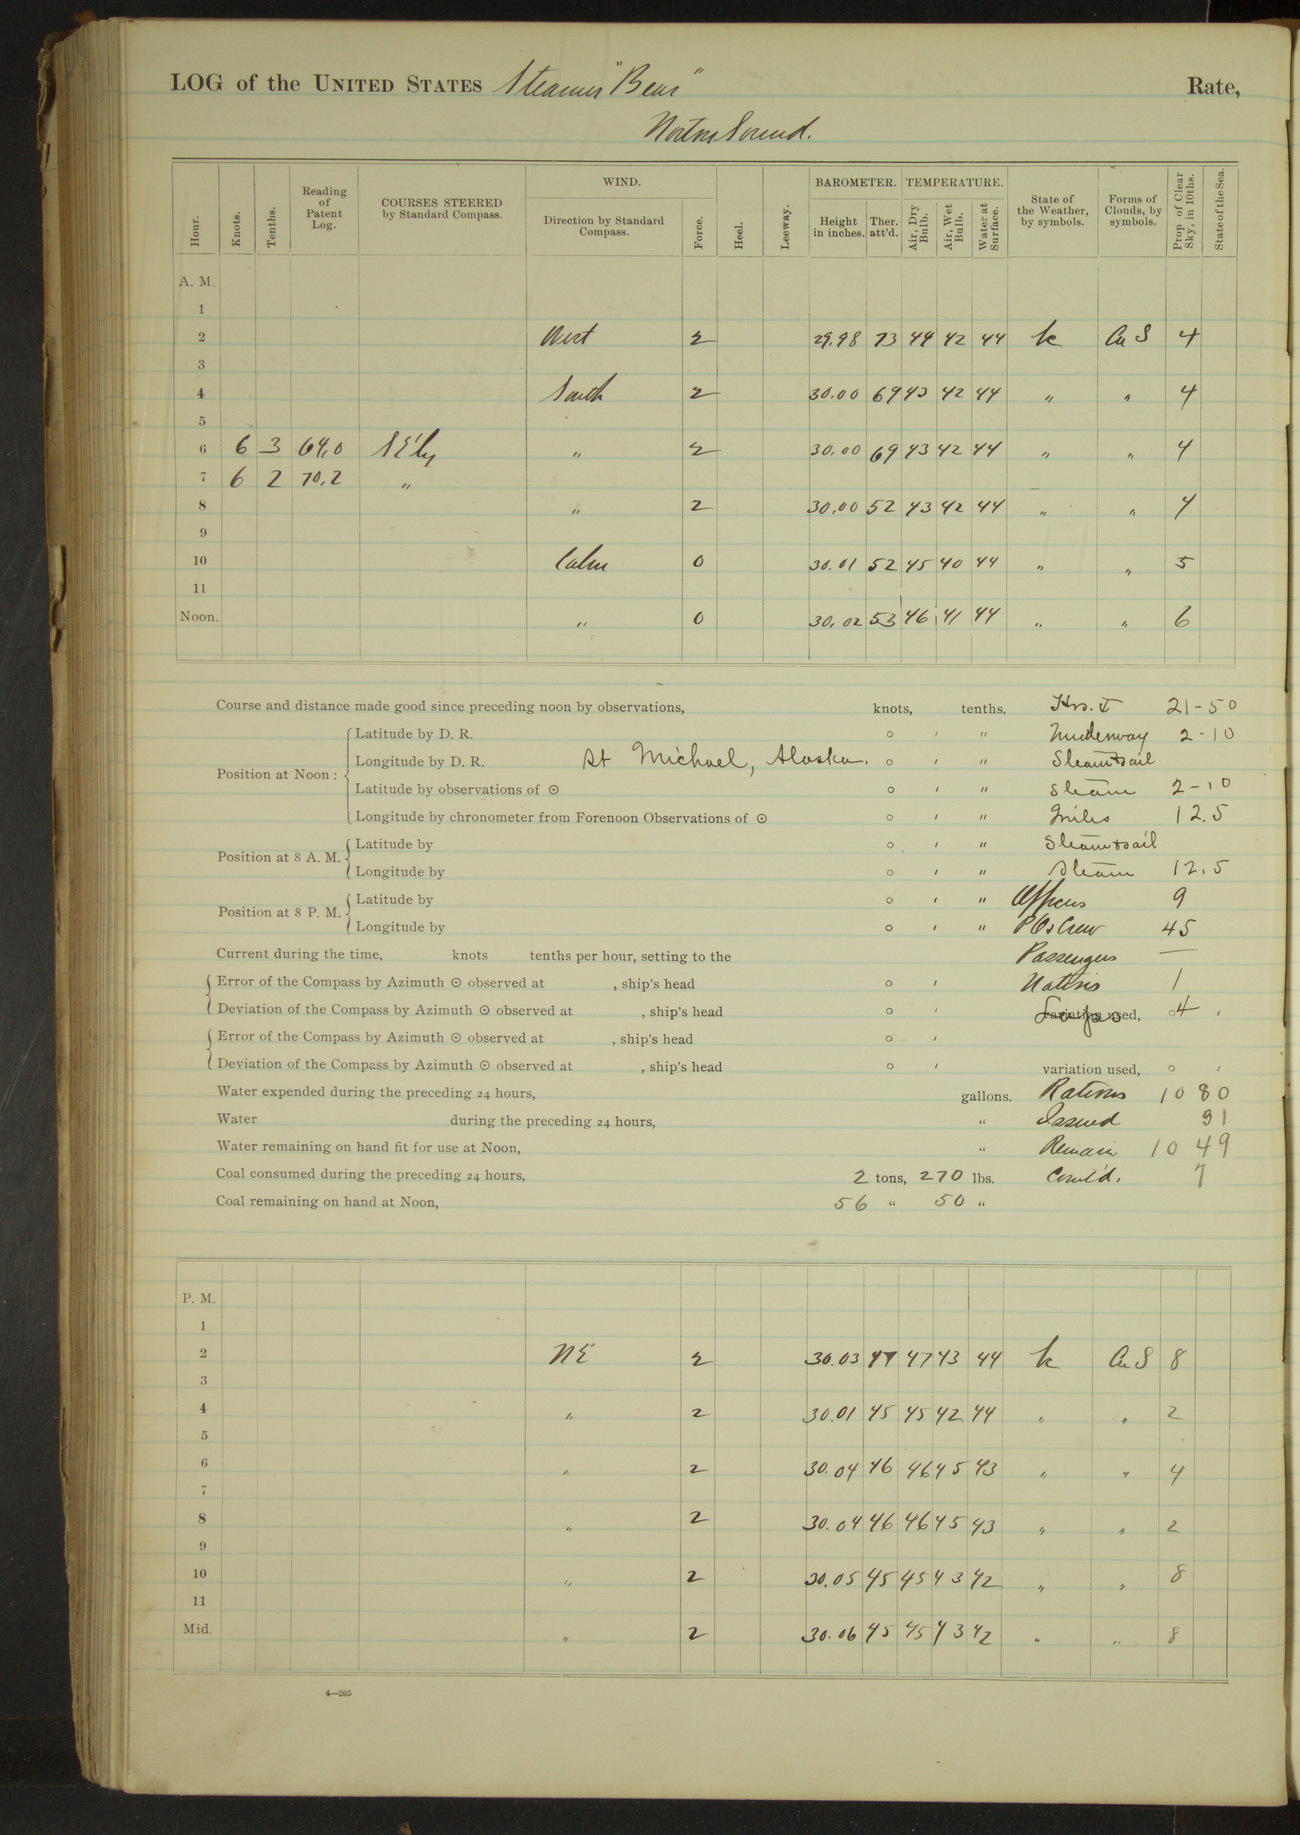 LOG of the UNITED STATES Steamer "Bear" Rate,
Norton Sound.
Hour. Knots. Tenths. Reading of Patent Log. COURSES STEERED by Standard Compass. WIND. Direction by Standard Compass. Force. Heel. Leeway. BAROMETER. Height in inches. Ther. att'd. TEMPERATURE. Air, Dry Bulb. Air, Wet Bulb. Water at Surface. State of the Weather, by symbols. Forms of Clouds, by symbols. Prop. of Clear Sky, in 10ths. State of the Sea.
A. M.
1
2 West 2 29.98 73 44 42 44 bc Cu S 4
3
4 South 2 30.00 69 43 42 44 " " 4
5
6 6 3 64.0 SE'ly " 2 30.00 69 43 42 44 " " 4
7 6 2 70.2 "
8 " 2 30.00 52 43 42 44 " " 4
9
10 Calm 0 30.01 52 45 40 44 " " 5
11
Noon. " 0 30.02 53 46 41 44 " " 6
Course and distance made good since preceding noon by observations, knots, tenths. Hrs. 21-50
Position at Noon: Latitude by D. R. ° ' " Underway 2-10
Longitude by D. R. St Michael, Alaska. ° ' " Steam & sail
Latitude by observations of ☉ ° ' " Steam 2-10
Longitude by chronometer from Forenoon Observations of ☉ ° ' " Miles 12.5
Position at 8 A. M. Latitude by ° ' " Steam & sail
Longitude by ° ' " Steam 12.5
Position at 8 P. M. Latitude by ° ' " Officers 9
Longitude by ° ' " P Os Crew 45
Current during the time, knots tenths per hour, setting to the Passengers —
Error of the Compass by Azimuth ☉ observed at , ship's head ° ' Natives 1
Deviation of the Compass by Azimuth ☉ observed at , ship's head ° ' variation used, ° 4 '
Error of the Compass by Azimuth ☉ observed at , ship's head ° '
Deviation of the Compass by Azimuth ☉ observed at , ship's head ° ' variation used, ° '
Water expended during the preceding 24 hours, gallons. Rations 1080
Water during the preceding 24 hours, " Issued 31
Water remaining on hand fit for use at Noon, " Remain 1049
Coal consumed during the preceding 24 hours, 2 tons, 270 lbs. Com'td. 7
Coal remaining on hand at Noon, 56 " 50 "
P. M.
1
2 NE 2 30.03 47 47 43 44 bc Cu S 8
3
4 " 2 30.01 45 45 42 44 " " 2
5
6 " 2 30.04 46 46 45 43 " " 4
7
8 " 2 30.04 46 46 45 43 " " 2
9
10 " 2 30.05 45 45 43 42 " " 8
11
Mid. " 2 30.06 45 45 43 42 " " 8
4—205